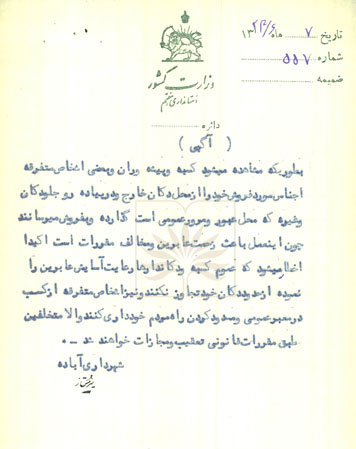 تاریخ ۷ ماه ۱۳۲۶/۶
شماره ۵۵۷
ضمیمه
وزارت کشور
استانداری هفتم
دائره
( آگهی )
بطوریکه مشاهده میشود کسبه وپیشه وران وبعضی اشخاص متفرقه
اجناس موردفروش خودرا ازمحل دکان خارج ودرپیاده رو جلودکان
وغیره که محل عبور ومرورعمومی است گذارده وبفروش میرسانند
چون اینعمل باعث زحمت عابرین ومخالف مقررات است اکیدا
اخطارمیشود که عموم کسبه ودکاندارها رعایت آسایش عابرین را
نموده ازحدوددکان خودتجاوز نکنند ونیزاشخاص متفرقه ازکسب
درمعبرعمومی ومسدودکردن راه مردم خودداری کنند والا متخلفین
طبق مقررات قانونی تعقیب ومجازات خواهند شد ـ .
شهرداری آباده